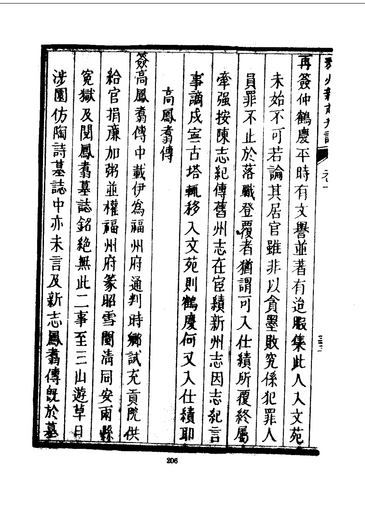 再簽仲鶴慶平時有文譽並著有迨暇集此人入文苑
未始不可若論其居官雖非以貪墨敗究係犯罪人
員罪不止於落職登覆者猶謂可入仕績所覆終屬
牽強按陳志紀傳舊州志在宦績新州志因志紀言
事謫戍寧古塔輒移入文苑則鶴慶何又入仕績耶
高鳳翥傳
簽高鳳翥傳中載伊為福州府通判時鄉試充貢院供
給官捐廉加粥並權福州府篆昭雪閩清同安兩縣
冤獄及閱鳳翥墓誌銘絕無此二事至三山遊草日
涉園仿陶詩墓誌中亦未言及新志鳳翥傳既於墓
206